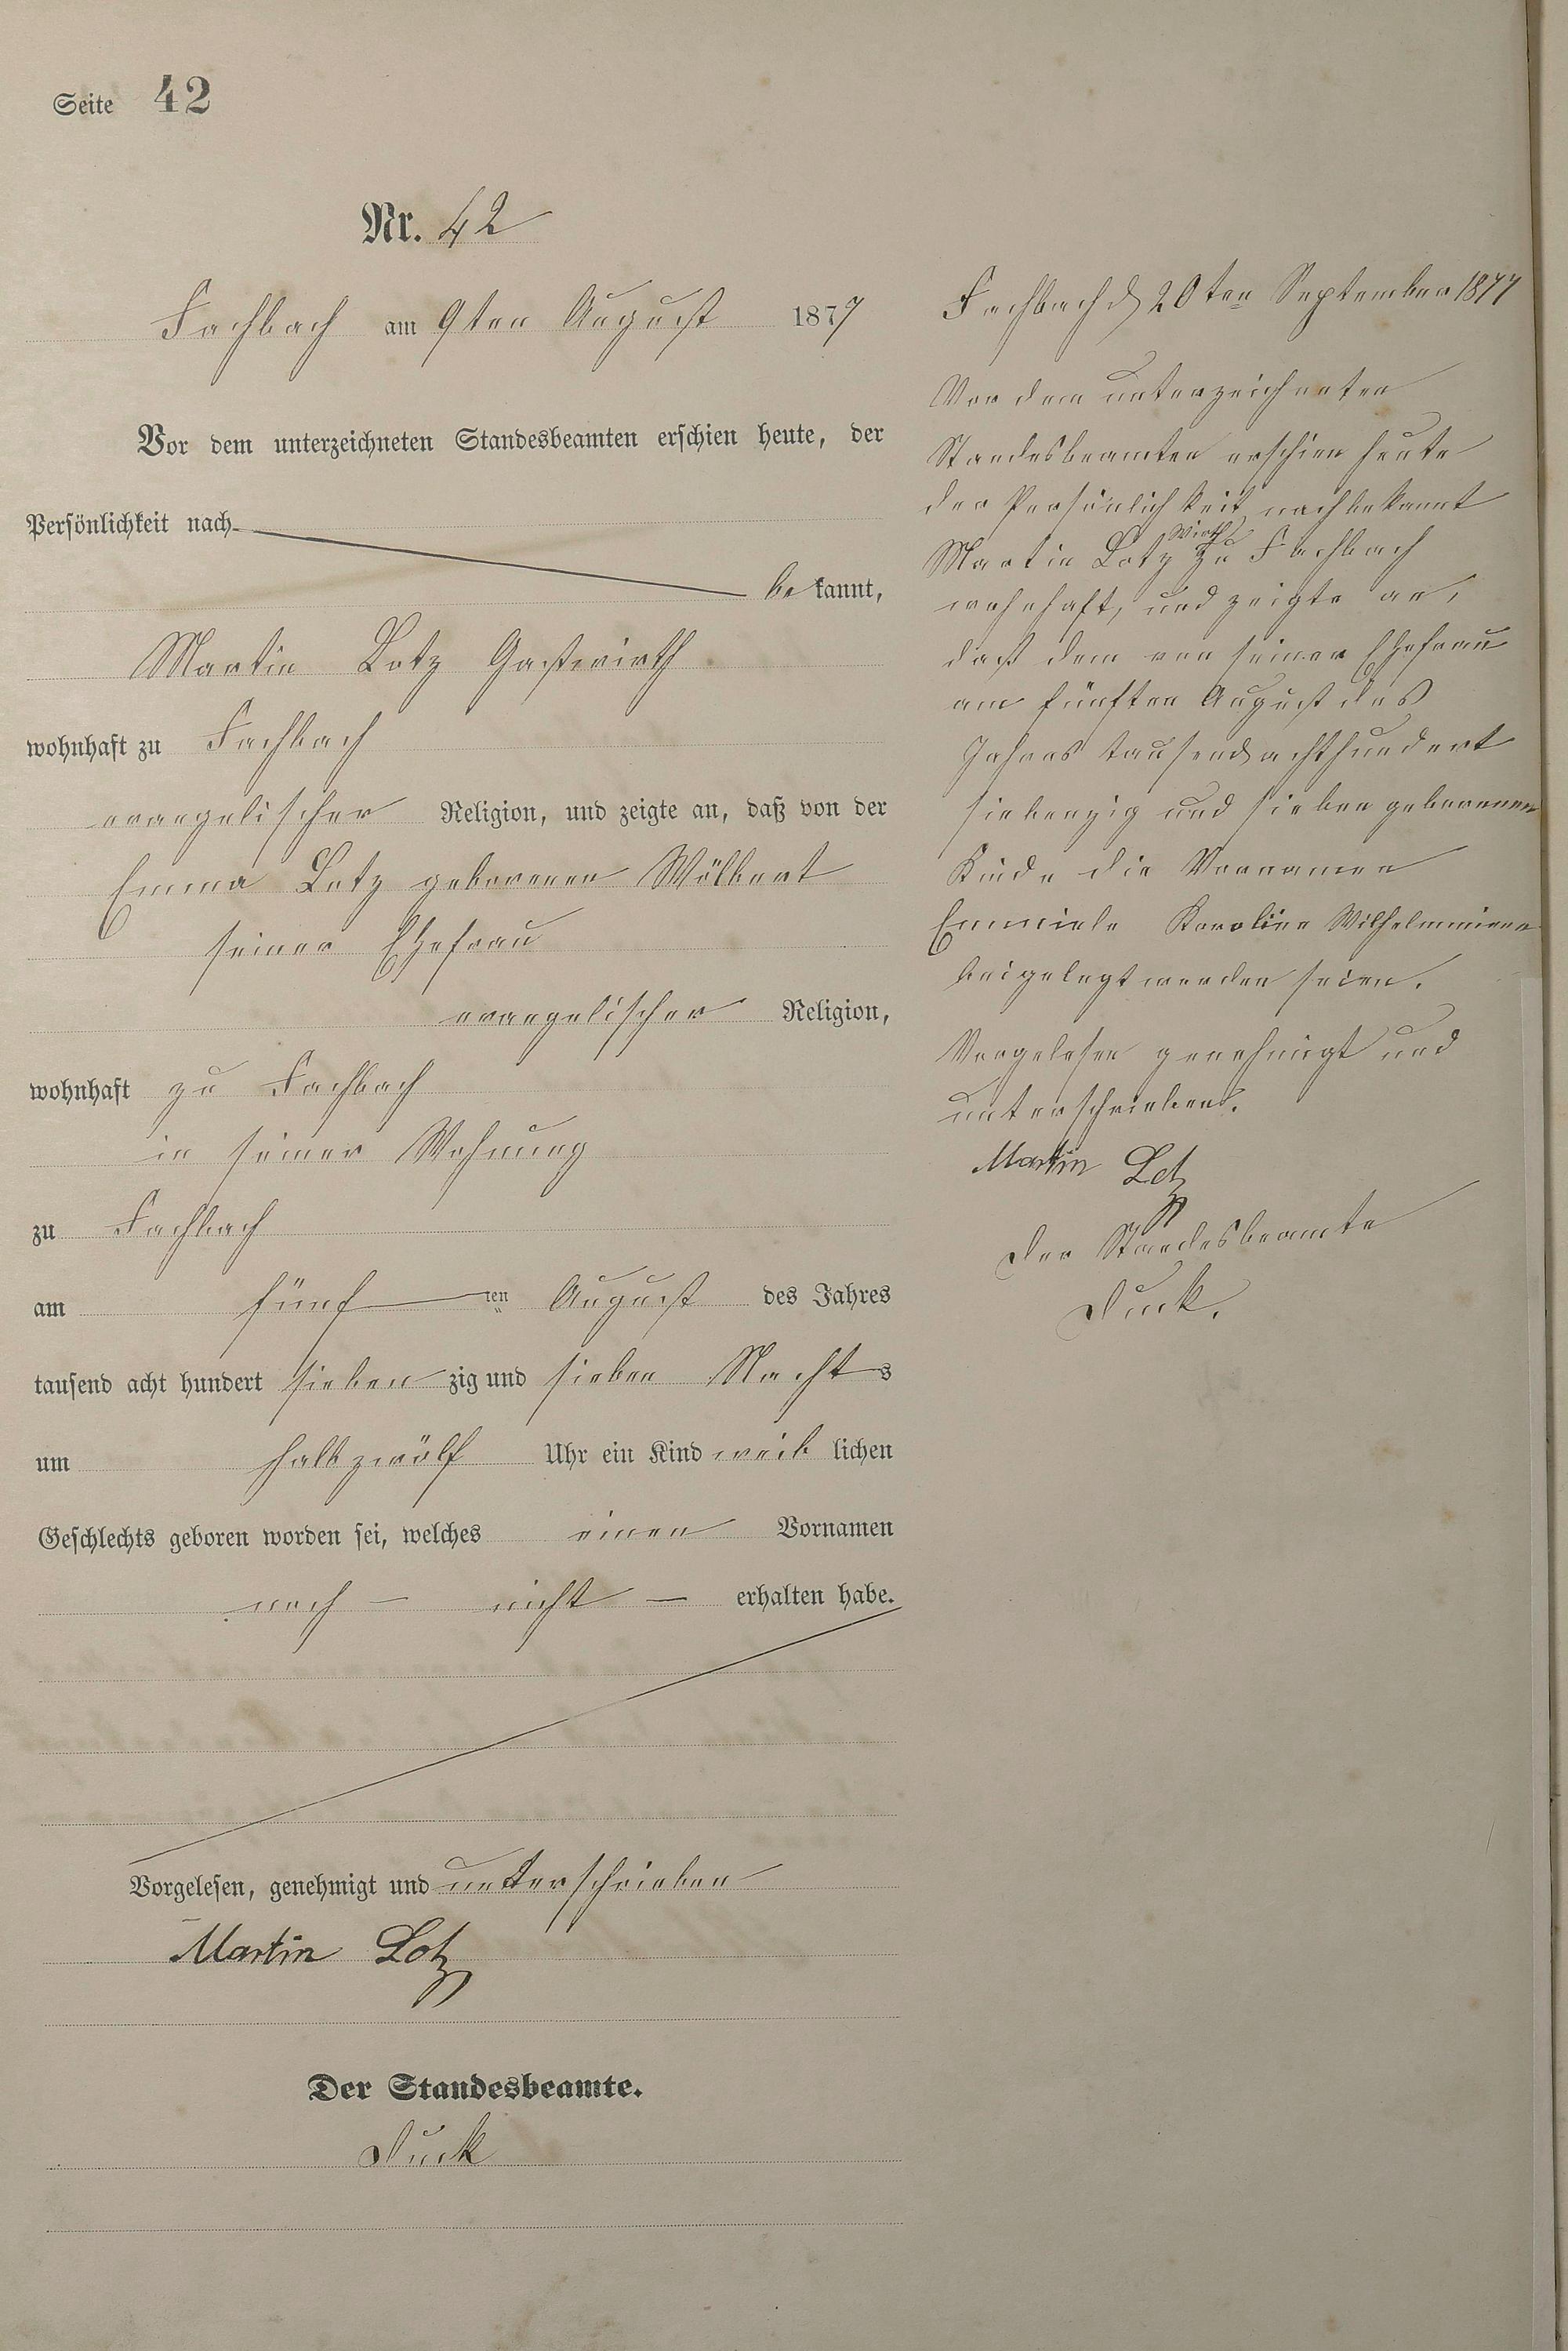 Seite 42
Nr. 42
Fachbach am 9ten August 1877
Vor dem unterzeichneten Standesbeamten erschien heute, der
Persönlichkeit nach
be kannt,
Martin Lotz Gastwirth
wohnhaft zu Fachbach
evangelischer Religion, und zeigte an, daß von der
Emma Lotz geborenen Wölbert
seiner Ehefrau
evangelischer Religion,
wohnhaft zu Fachbach
in seiner Wohnung
zu Fachbach
am fünf ten August des Jahres
tausend acht hundert sieben zig und sieben Nachts
um halb zwölf Uhr ein Kind weib lichen
Geschlechts geboren worden sei, welches einen Vornamen
noch — nicht — erhalten habe.
Vorgelesen, genehmigt und unterschrieben
Martin Lotz
Der Standesbeamte.
Duck
Fachbach d 20ten September 1877
Vor dem unterzeichneten
Standesbeamten erschien heute
der Persönlichkeit nach bekannt
Martin Lotz Wirth zu Fachbach
wohnhaft, und zeigte an,
daß dem von seiner Ehefrau
am fünften August des
Jahres tausend achthundert
siebenzig und sieben geborenen
Kinde die Vornamen
Karoline Wilhelmmine
beigelegt worden seien.
Vorgelesen genehmigt und
unterschrieben.
Martin Lotz
Der Standesbeamte
Duck.